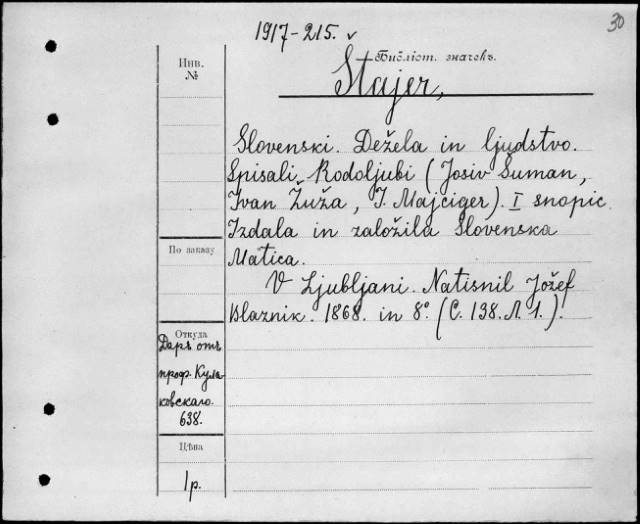 30
1917-215.
Инв.
№
Библіот. значекъ.
Štajer,
Slovenski. Dežela in ljudstvo.
Spisali Rodoljubi (Josiv Šuman,
Ivan Žuža, I. Majciger). I snopic.
Izdala in založila Slovenska
Matica.
По заказу
V Ljubljani. Natisnil Jožef
Blaznik. 1868. in 8°. (C. 138. Л. 1.).
Откуда
Даръ отъ
проф. Кула-
ковскаго.
638.
Цѣна
1 р.